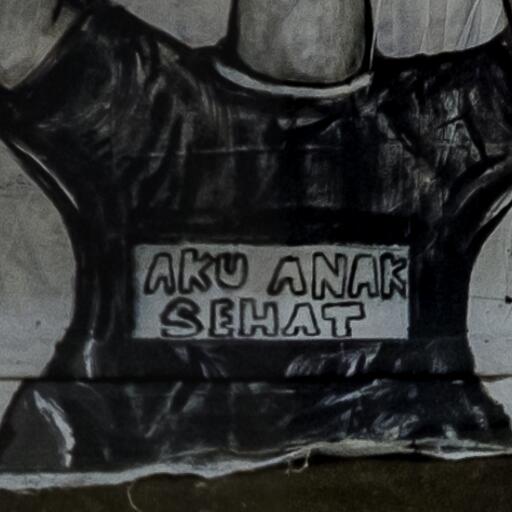 AKU ANAK
SEHAT